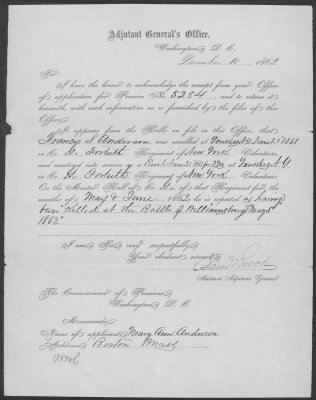 Adjutant General's Office,
Washington, D. C.
December 10 1862
Sir:
I have the honor to acknowledge the receipt from your Office
of application for Pension No. 5254 and to return it
herewith with such information as is furnished by the files of this
Office.
It appears from the Rolls on file in this Office, that
Francis S. Anderson was enrolled at
in Co. Regiment of New York Volunteers,
and mustered into service as a at N.Y.
in Co. Regiment of New York Volunteers.
On the Muster Roll of Co. of that Regiment, for the
months of May & June, 1862, he is reported as having
been "Killed at the Battle of Williamsburg May 5"
1862"
I am, Sir, very respectfully,
Your obedient servant,
Assistant Adjutant General
The Commissioner of Pensions,
Washington, D. C.
Memoranda:
Name of applicant, Mary Ann Anderson
Address, Boston Mass